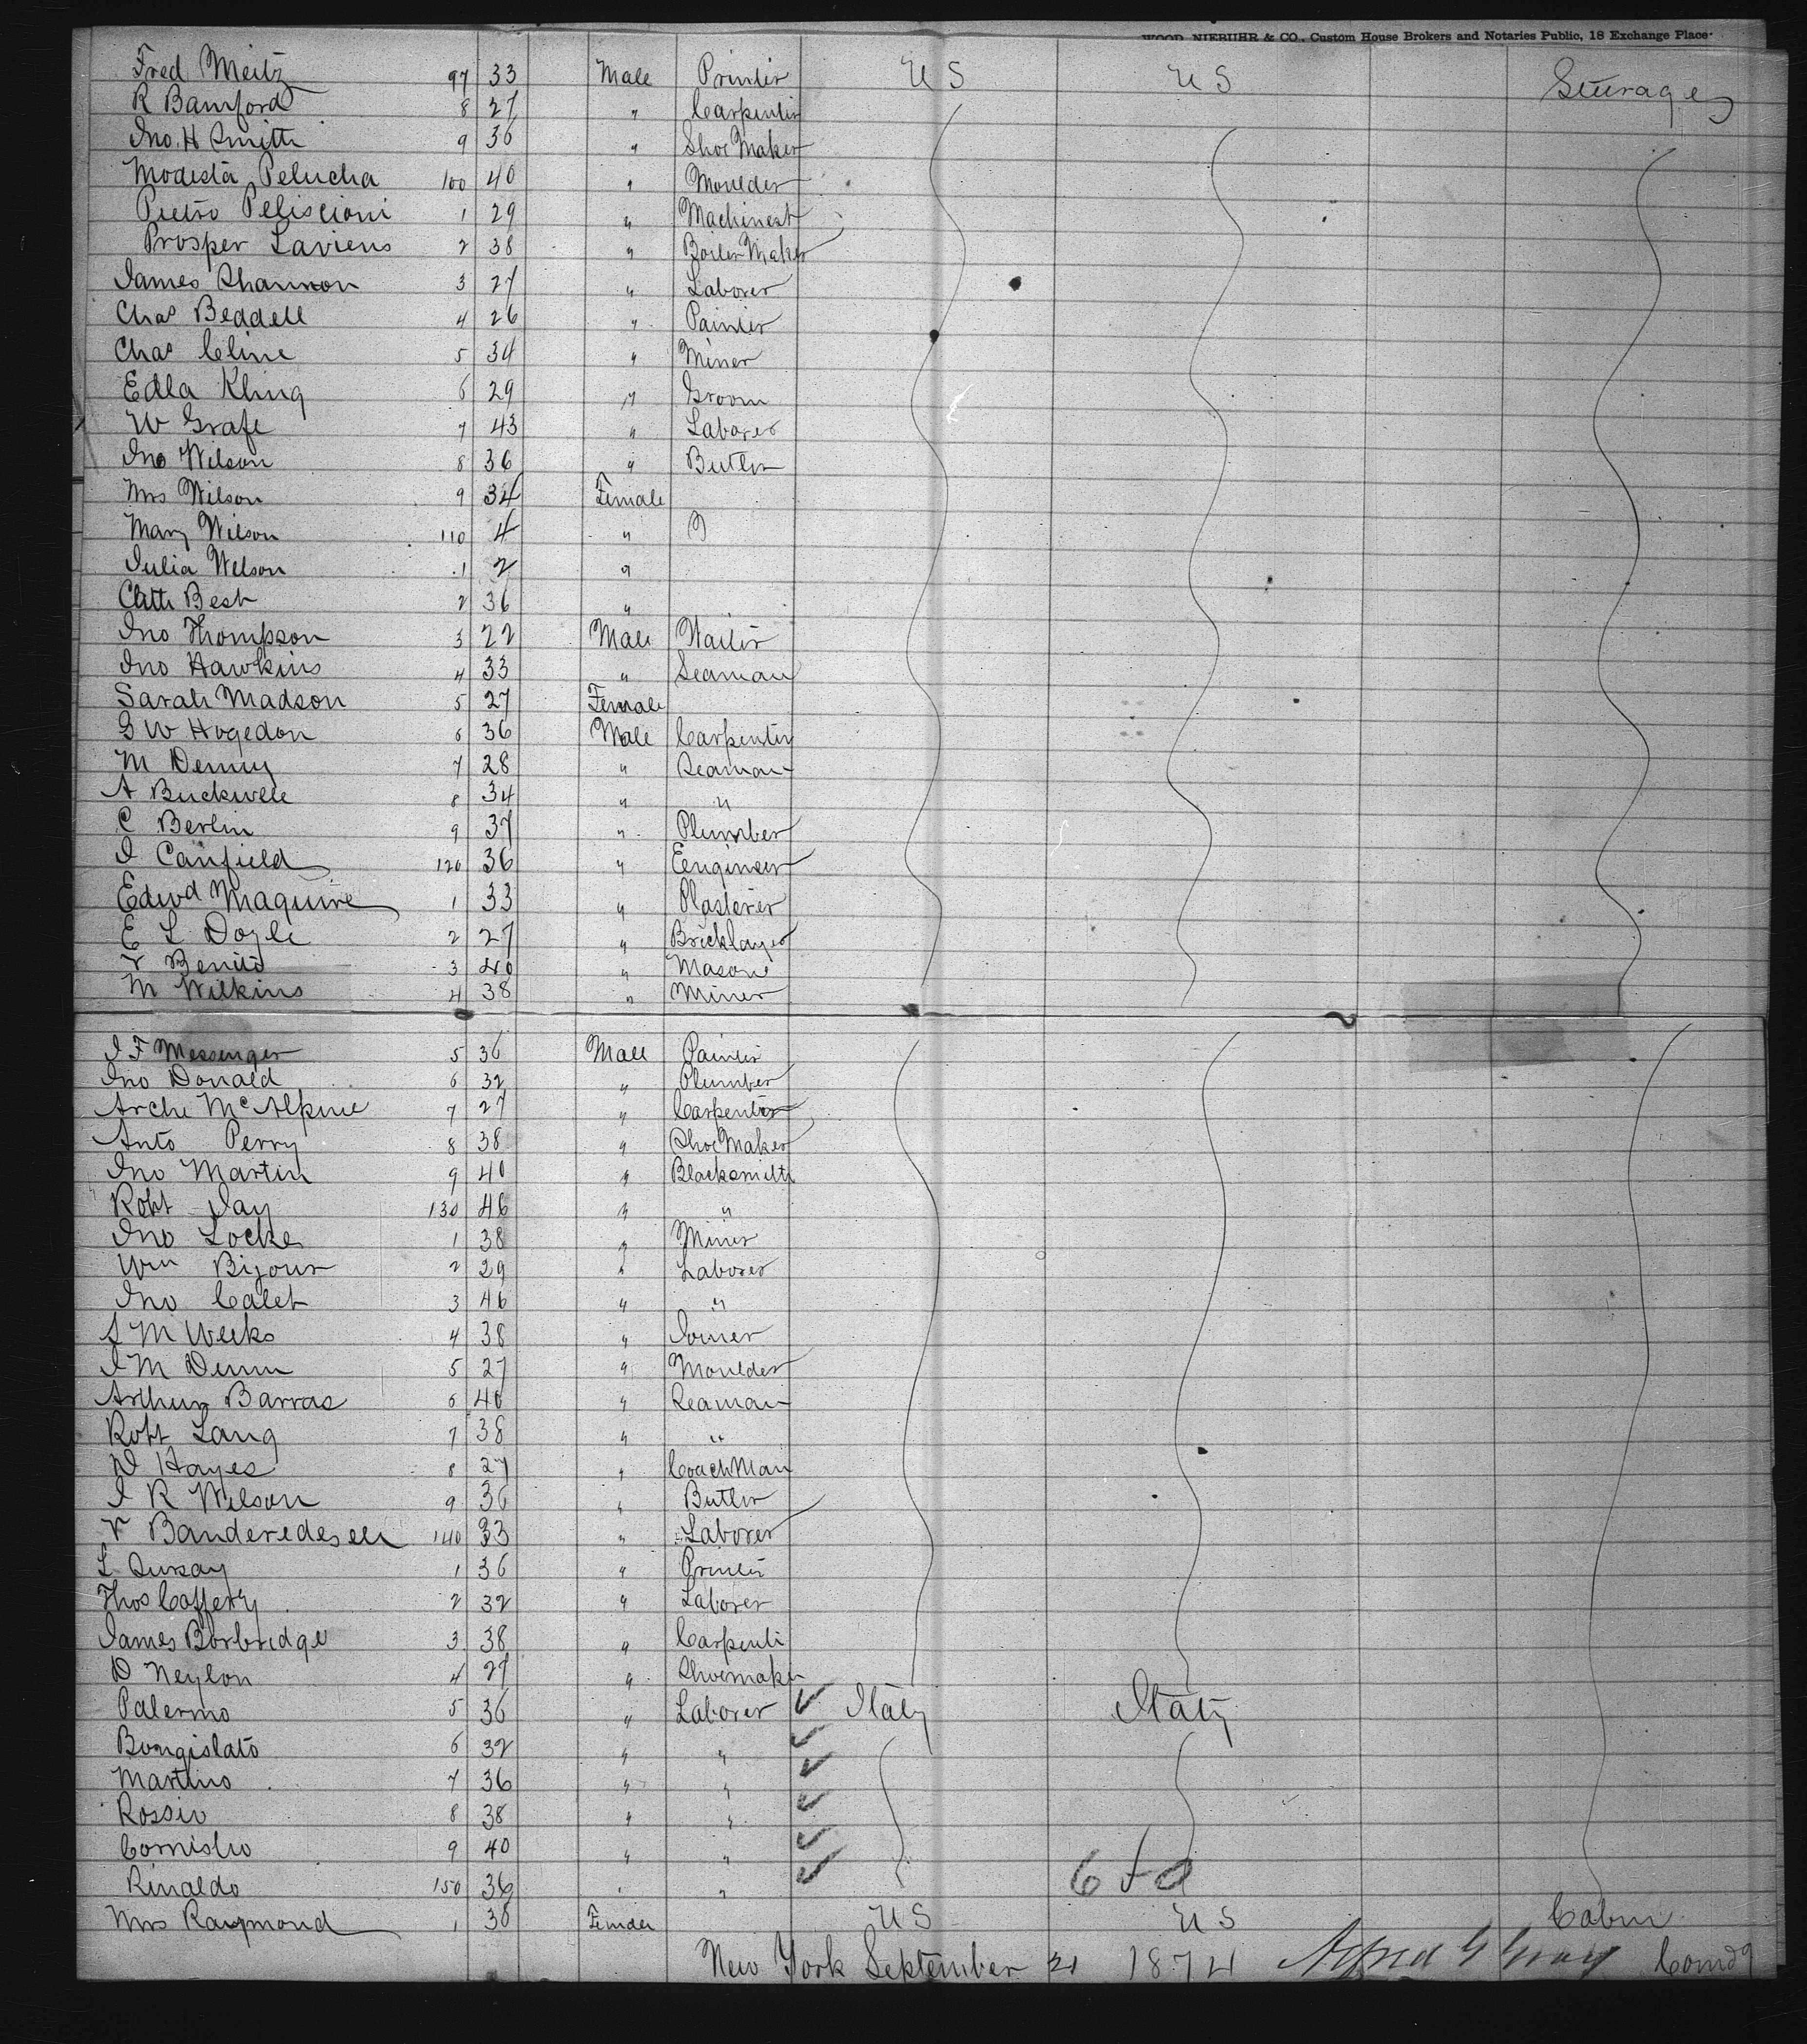 WOOD, NIEBUHR & CO. Custom House Brokers and Notaries Public, 18 Exchange Place
Fred Meitz 97 33 Male Printer U S U S Steerage
R Bamford 8 27 " Carpenter
Jno. H Smith 9 36 " Shoe Maker
Modesta Pelucha 100 40 " Moulder
Pietro Peliscioni 1 29 " Machinest
Prosper Laviens 2 38 " Boiler Maker
James Shannon 3 27 " Laborer
Chas Beddell 4 26 " Painter
Chas Cline 5 34 " Miner
Edla Kling 6 29 " Groom
W Grafe 7 43 " Laborer
Jno Wilson 8 36 " Butler
Mrs Wilson 9 34 Female
Mary Wilson 110 4 "
Julia Wilson 1 2 "
Best 2 36 "
Jno Thompson 3 22 Male Waiter
Jno Hawkins 4 33 " Seaman
Sarah Madson 5 27 Female
G W Hogedon 6 36 Male Carpenter
M Denny 7 28 " Seaman
A Buckwell 8 34 " "
C Berlin 9 37 " Plumber
J Canfield 120 36 " Eenginer
Edwd Maguire 1 33 " Plasterer
E L Doyle 2 27 " Bricklayer
V Benito 3 40 " Masone
M Wilkins 4 38 " Miner
J F Messenger 5 36 Male Painter
Jno Donald 6 32 " Plumber
Archi McAlpine 7 27 " Carpenter
Anto Perry 8 38 " Shoe Maker
Jno Martin 9 40 " Blacksmith
Robt Jay 130 46 " "
Jno Locke 1 38 " Miner
Wm Bijour 2 29 " Laborer
Jno Calet 3 46 " "
S M Weeks 4 38 " Joiner
J M Dunn 5 27 " Moulder
Arthur Barras 6 40 " Seaman
Robt Lang 7 38 " "
W Hayes 8 27 " Coach Man
J R Wilson 9 36 " Butler
V Banderedesen 140 33 " Laborer
L Dursay 1 36 " Printer
Thos Caffery 2 32 " Laborer
James Borbridge 3 38 " Carpente
D Neylon 4 27 " Shoemaker
Palermo 5 36 " Laborer Italy Italy
Bongislato 6 32 " "
Martino 7 36 " "
Rossiv 8 38 " "
Cornisho 9 40 " "
Rinaldo 150 36 " "
Mrs Raymond 1 38 Female U S U S Cabin
New York September 21 1874 Alfred G Gray Comdg